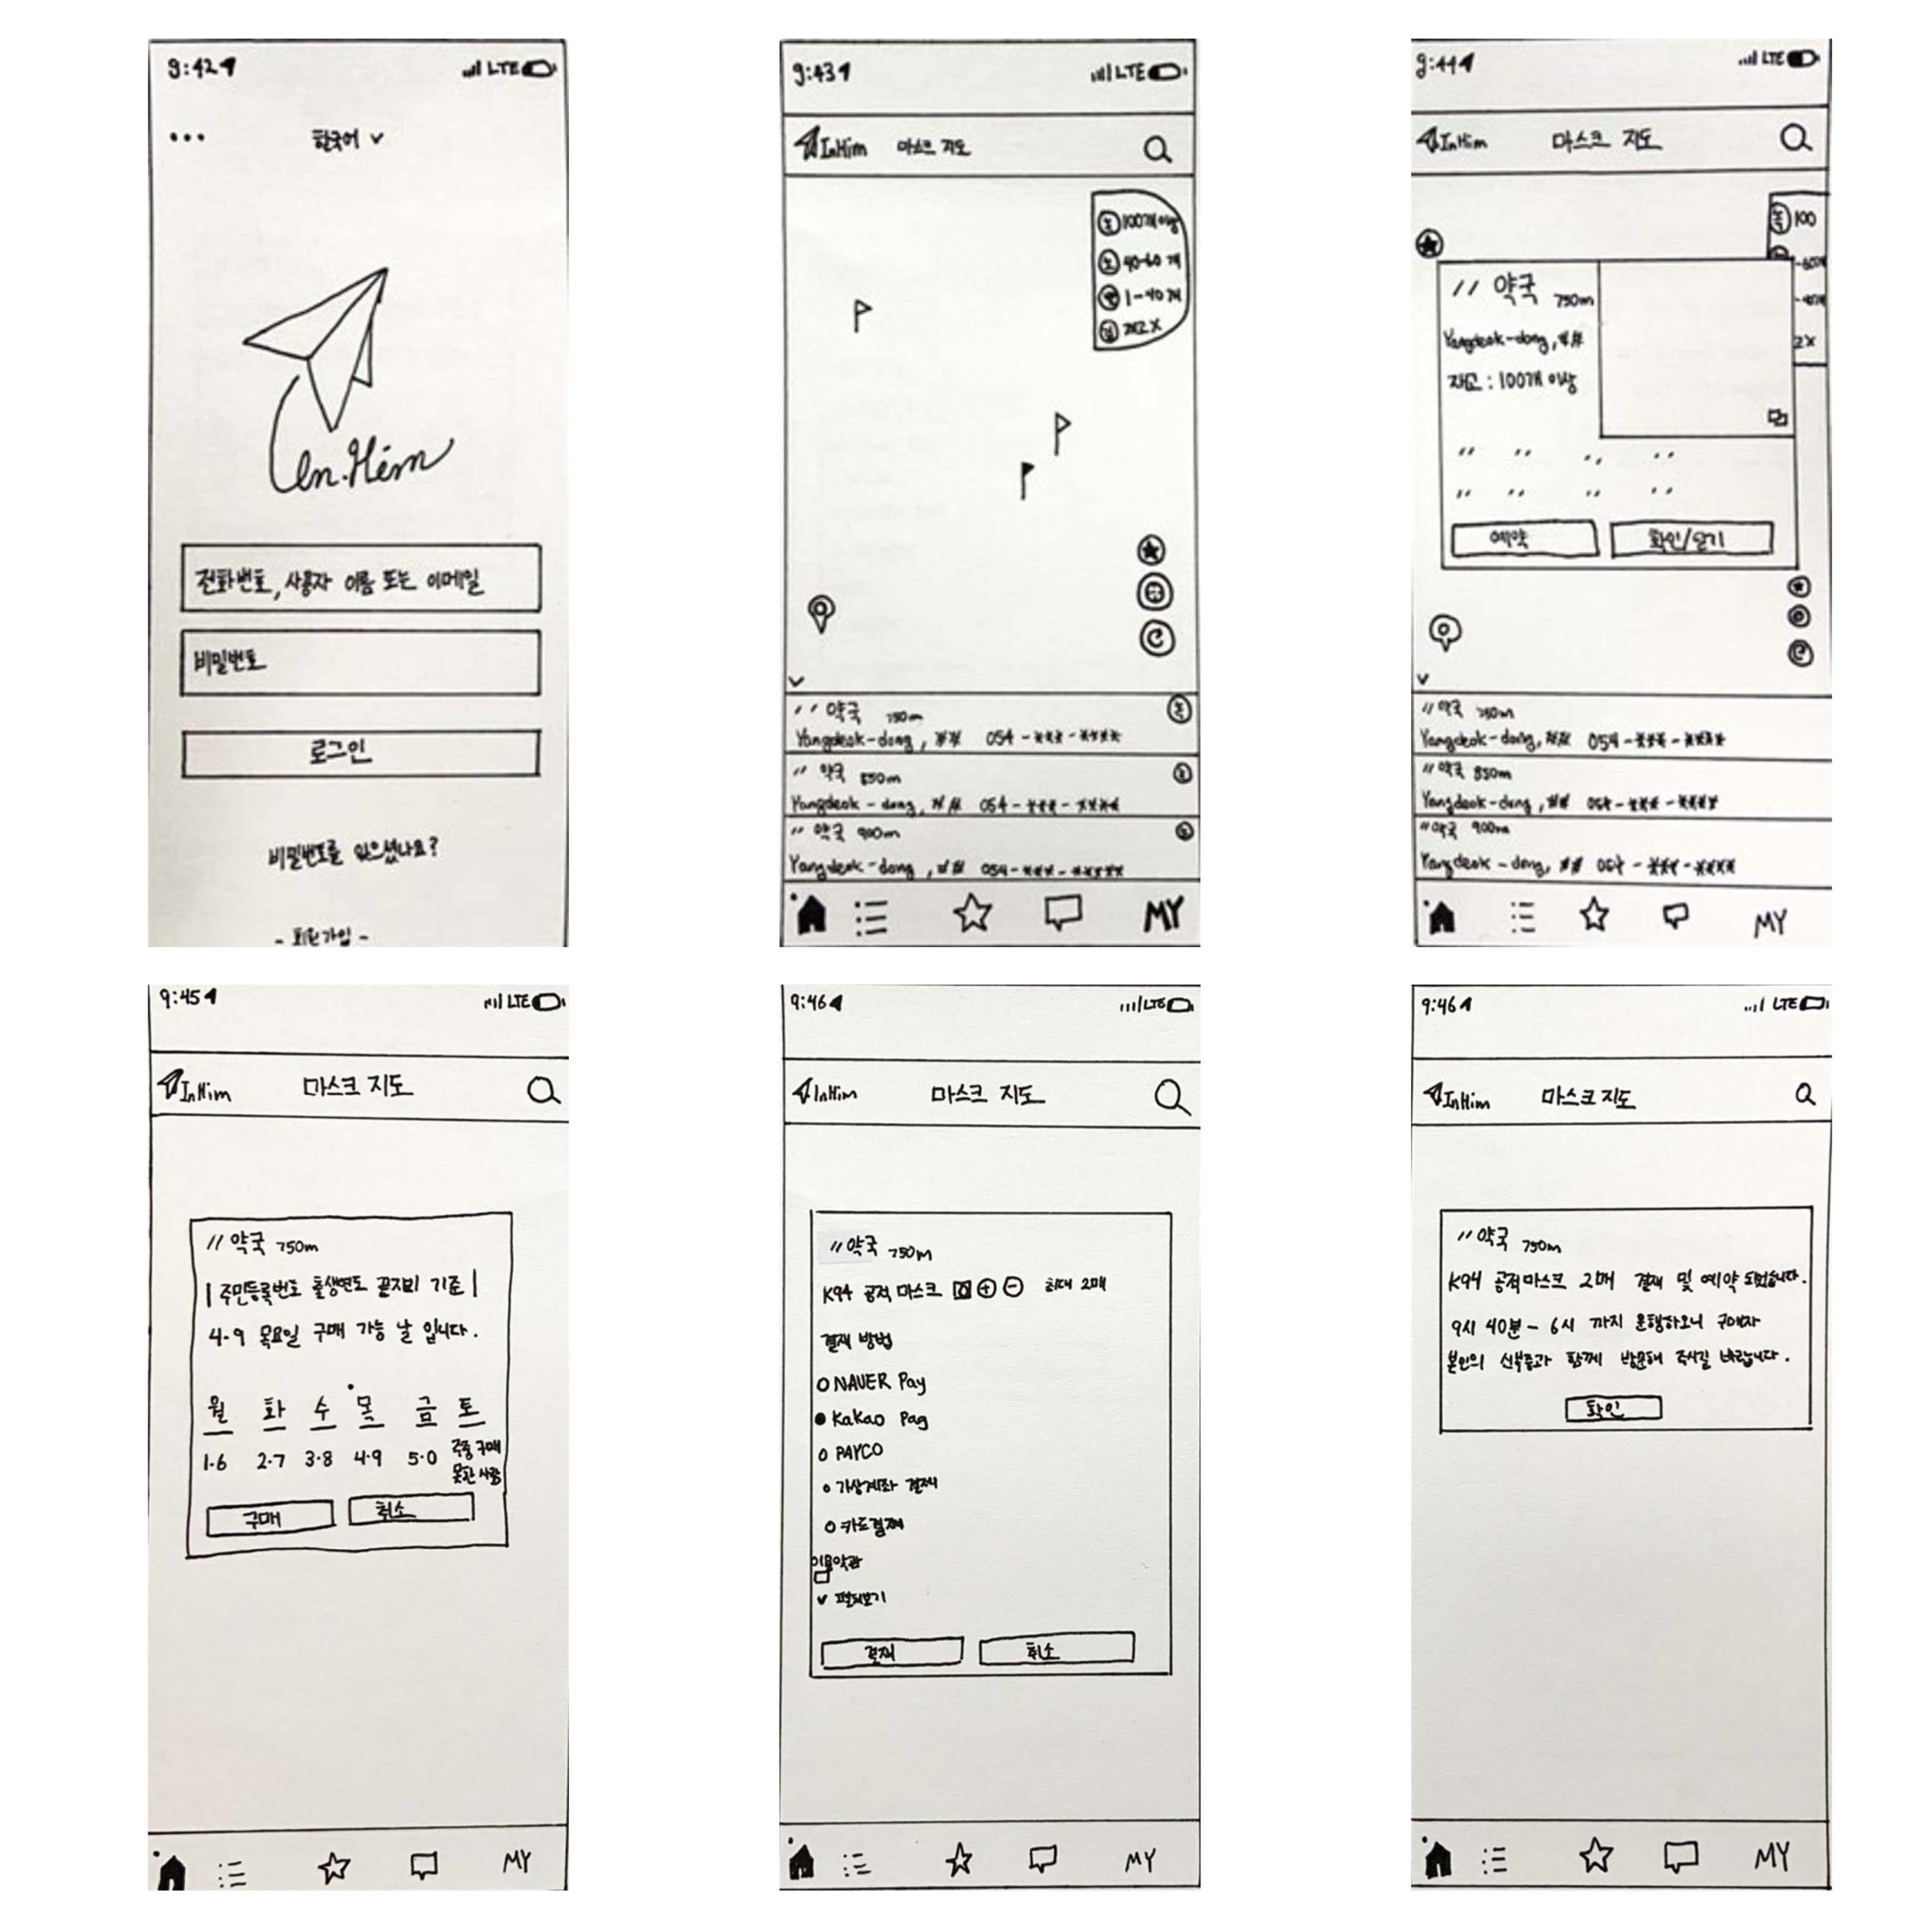 9:42
LTE
한국어
In.Him
전화번호, 사용자 이름 또는 이메일
비밀번호
로그인
비밀번호를 잊으셨나요?
- 회원가입 -
9:43
LTE
InHim 마스크 지도
녹 100개이상
노 40-60개
빨 1-40개
검 재고X
〃 약국 750m 녹
Yangdeok-dong, ## 054-***-****
〃 약국 850m 노
Yangdeok-dong, ## 054-***-****
〃 약국 900m 노
Yangdeok-dong, ## 054-***-****
MY
9:44
LTE
InHim 마스크 지도
녹 100
〃 약국 750m
Yangdeok-dong, ##
재고 : 100개 이상
예약 확인/닫기
〃 약국 750m
Yangdeok-dong, ## 054-***-****
〃 약국 850m
Yangdeok-dong, ## 054-***-****
〃 약국 900m
Yangdeok-dong, ## 054-***-****
MY
9:45
LTE
InHim 마스크 지도
〃 약국 750m
| 주민등록번호 출생연도 끝자리 기준 |
4·9 목요일 구매 가능 날 입니다.
월 화 수 목 금 토
1·6 2·7 3·8 4·9 5·0 주중 구매
못한 사람
구매 취소
MY
9:46
LTE
InHim 마스크 지도
〃 약국 750m
K94 공적 마스크 0 + - 최대 2매
결제 방법
NAVER Pay
Kakao Pay
PAYCO
가상계좌 결제
카드결제
이용약관
펼쳐보기
결제 취소
MY
9:46
LTE
InHim 마스크 지도
〃 약국 750m
K94 공적마스크 2매 결제 및 예약 되었습니다.
9시 40분 - 6시 까지 운행하오니 구매자
본인의 신분증과 함께 방문해 주시길 바랍니다.
확인
MY